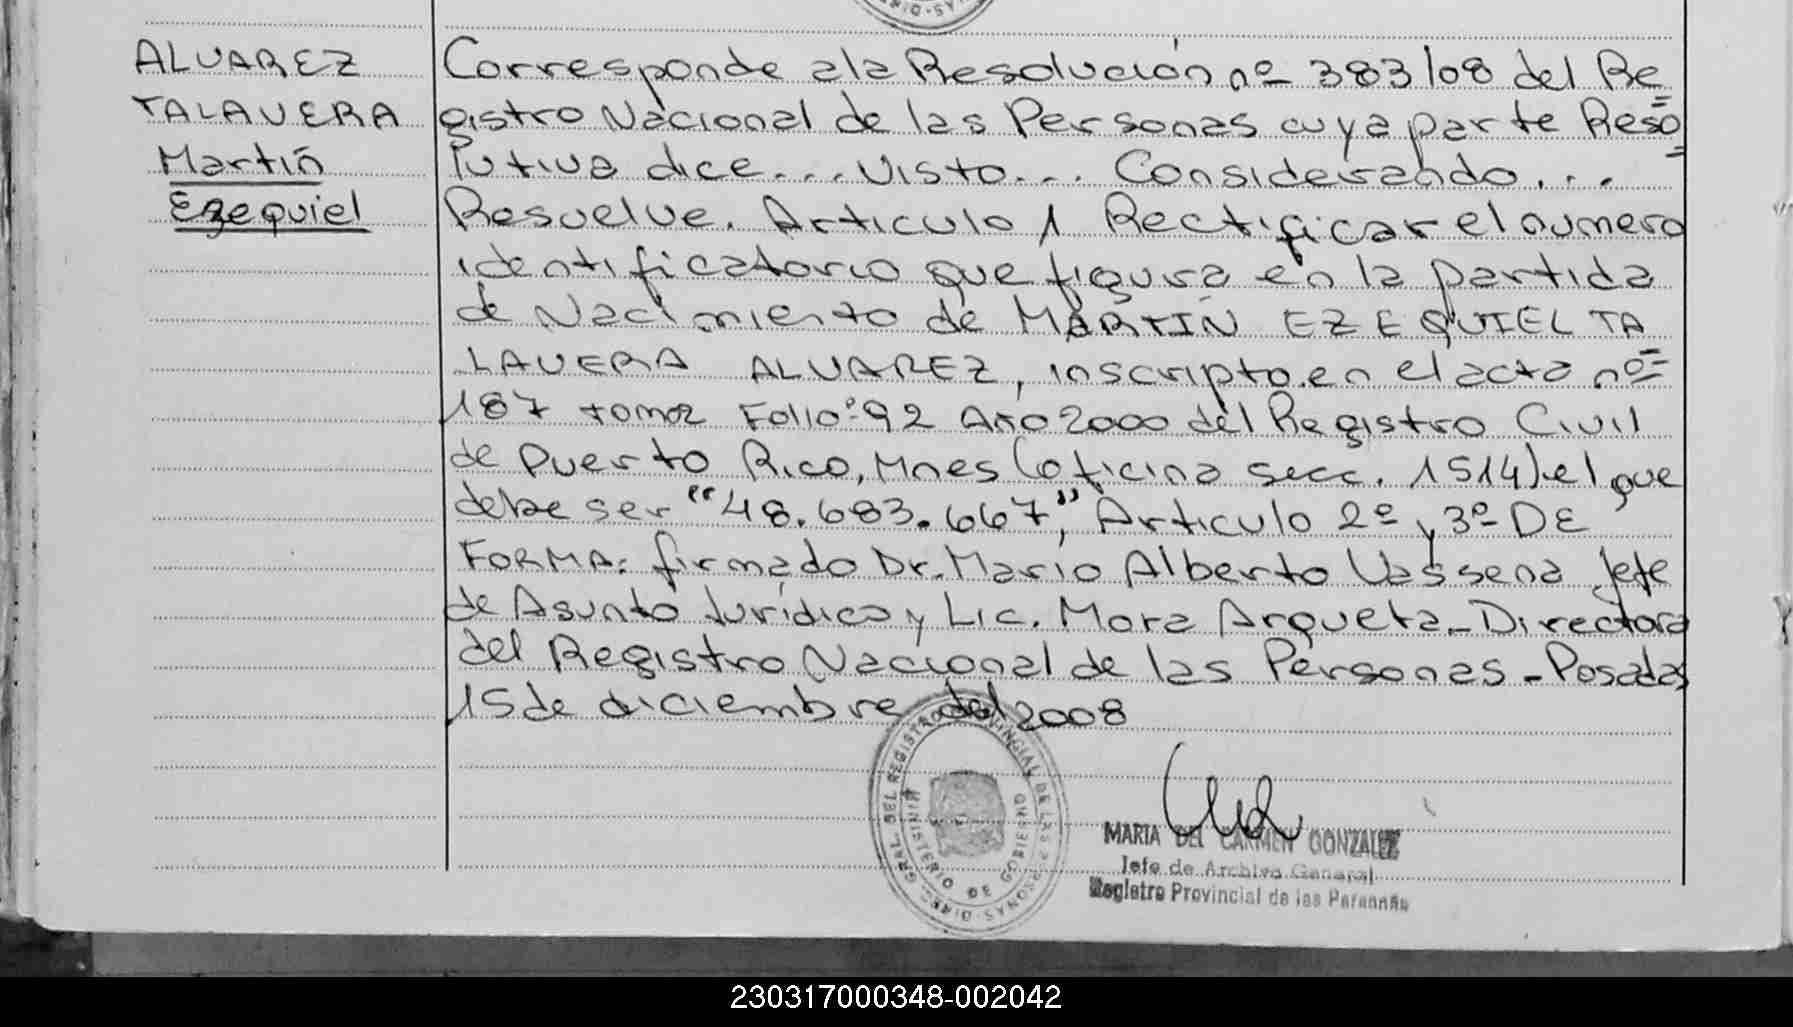 ALVAREZ
TALAVERA
Martín
Ezequiel
Corresponde a la Resolución nº 383/08 del Re=
gistro Nacional de las Personas cuya parte Reso=
lutiva dice... Visto... Considerando...
Resuelve. Articulo 1 Rectificar el numero
identificatorio que figura en la partida
de Nacimiento de MARTÍN EZEQUIEL TA=
LAVERA ALVAREZ, inscripto en el acta nº
187 tomo 2 Folio: 92 Año 2000 del Registro Civil
de Puerto Rico, Mnes (oficina secc. 1514) el que
debe ser "48.683.667", Articulo 2º y 3º DE
FORMA: firmado Dr. Mario Alberto Vassena Jefe
de Asunto Jurídico y Lic. Mora Arqueta - Directora
del Registro Nacional de las Personas - Posadas
15 de diciembre del 2008
GRAL. DEL REGISTRO PROVINCIAL DE LAS PERSONAS - DIREC.
MINISTERIO DE GOBIERNO
MARIA DEL CARMEN GONZALEZ
Jefe de Archivo General
Registro Provincial de las Personas
230317000348-002042